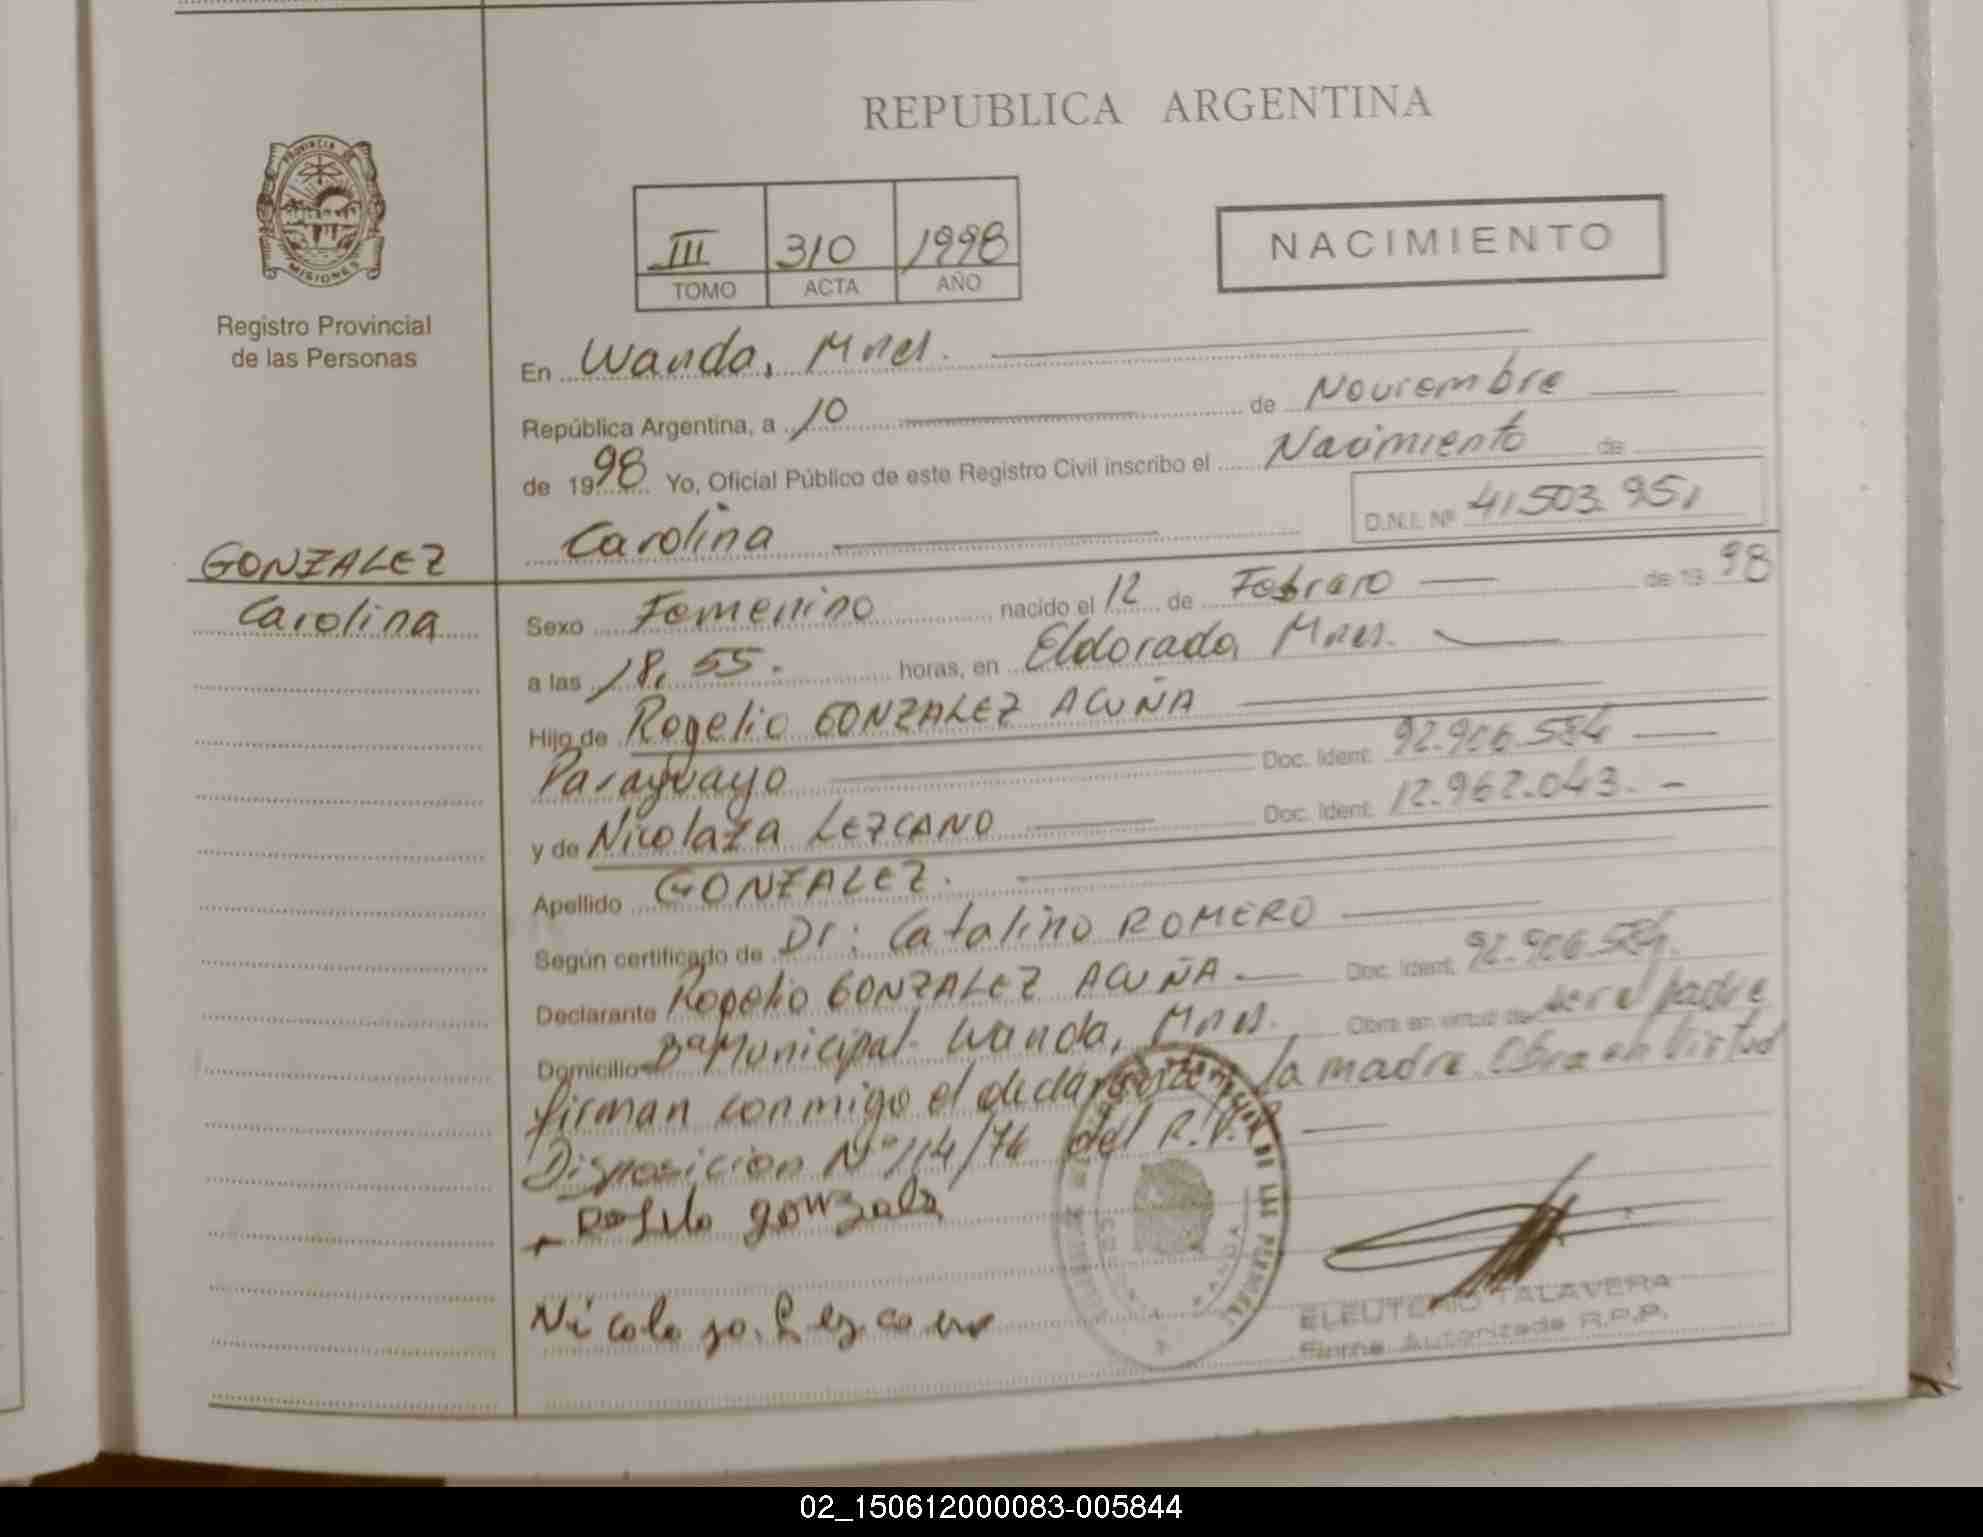 REPUBLICA ARGENTINA
PROVINCIA DE
MISIONES
Registro Provincial
de las Personas
III 310 1998
TOMO ACTA AÑO
NACIMIENTO
En Wanda, Mnes.
República Argentina, a 10 de Noviembre
de 1998 Yo, Oficial Público de este Registro Civil inscribo el Nacimiento de
Carolina D.N.I. Nº 41.503.951
GONZALEZ
Carolina
Sexo Femenino nacido el 12 de Febrero de 1998
a las 18,55. horas, en Eldorado, Mnes.
Hijo de Rogelio GONZALEZ ACUÑA
Paraguayo Doc. Ident. 92.906.584
y de Nicolaza LEZCANO Doc. Ident. 12.962.043.
Apellido GONZALEZ.
Según certificado de Dr: Catalino ROMERO
Declarante Rogelio GONZALEZ ACUÑA Doc. Ident. 92.906.584.
Domicilio Bº Municipal- Wanda, Mnes. Obra en virtud de ser el padre
firman conmigo el declarante y la madre. Obra en Virtud
Disposicion Nº 114/76 del R.P.
gonzalez
ELEUTERIO TALAVERA
Firma Autorizada R.P.P.
02_150612000083-005844